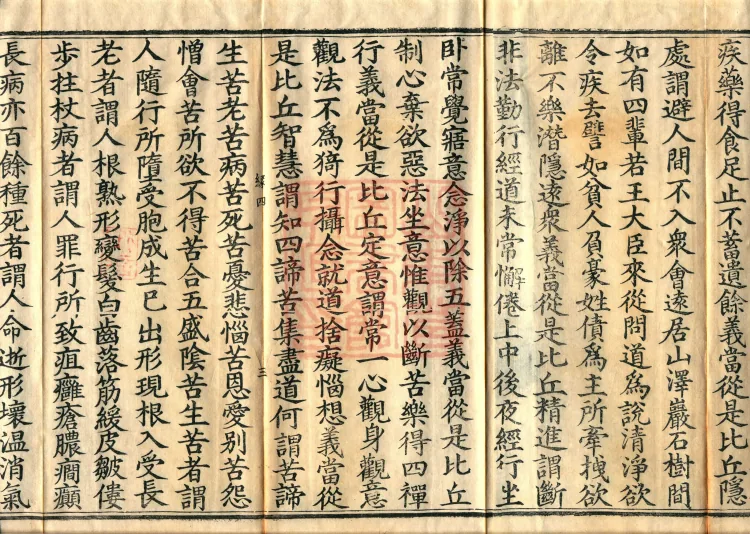 疾藥得食足止不蓄遺餘義當從是比丘隱
處謂避人間不入衆會遠居山澤巖石樹間
如有四輩若王大臣來從問道為說清淨欲
令疾去譬如貧人負豪姓債為主所牽拽欲
離不樂潛隱遠衆義當從是比丘精進謂斷
非法勤行經道未常懈倦上中後夜經行坐
卧常覺寤意念淨以除五蓋義當從是比丘
制心棄欲惡法坐意惟觀以斷苦樂得四禪
行義當從是比丘定意謂常一心觀身觀意
觀法不為猗行攝念就道捨癡惱想義當從
是比丘智慧謂知四諦苦集盡道何謂苦諦
緑四
三
生苦老苦病苦死苦憂悲惱苦恩愛別苦怨
憎會苦所欲不得苦合五盛陰苦生苦者謂
人隨行所墮受胞成生已出形現根入受長
老者謂人根熟形變髮白齒落筋緩皮皺僂
步拄杖病者謂人罪行所致疽癰瘡膿癇癲
長病亦百餘種死者謂人命逝形壞溫消氣